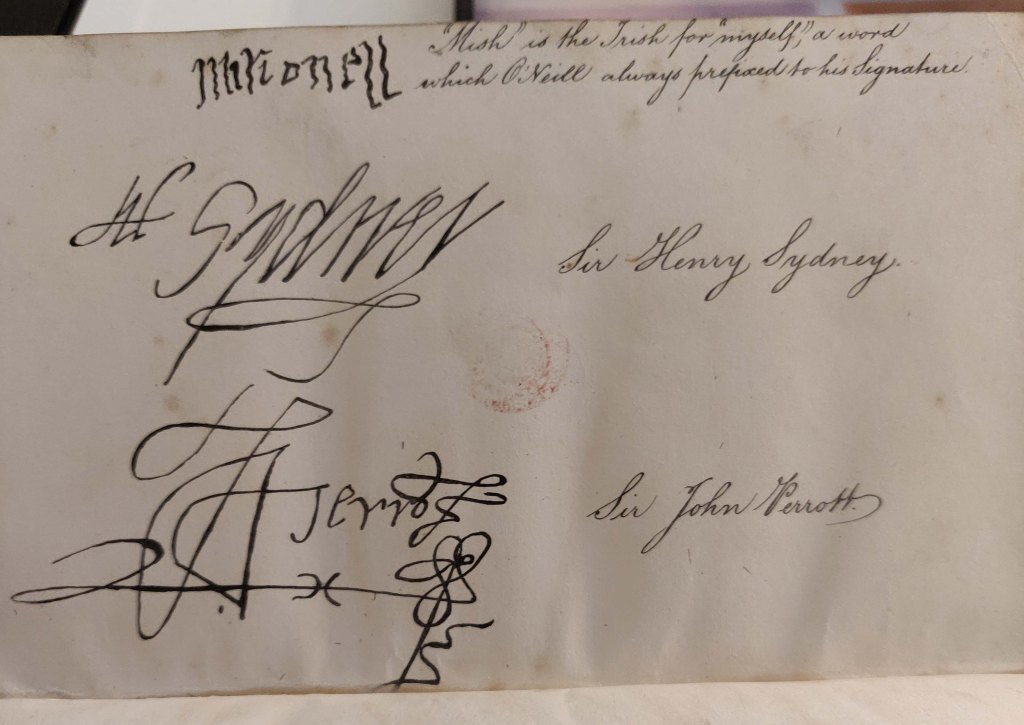 Misi oneill
"Mish" is the Irish for "myself," a word
which O'Neill always prefixed to his Signature.
H Sydney
Sir Henry Sydney.
Perrot
Sir John Perrott.